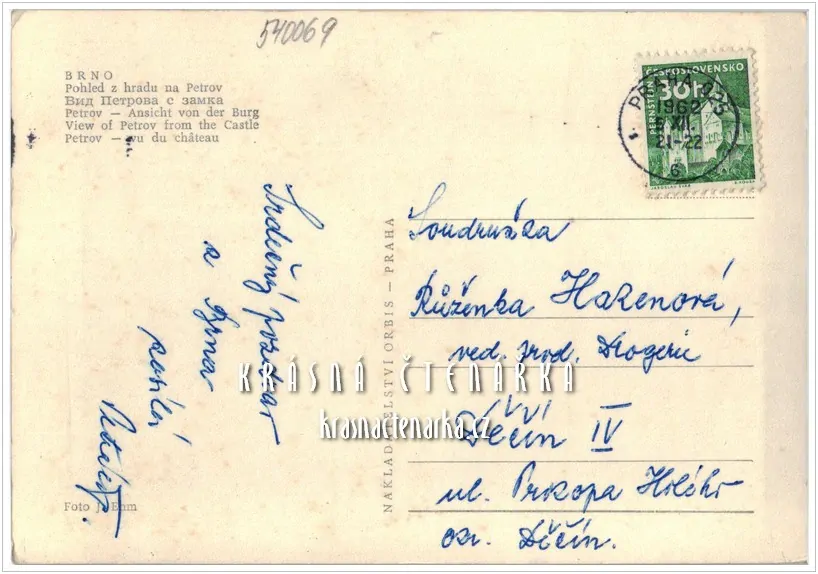 540069
BRNO
Pohled z hradu na Petrov
Вид Петрова с замка
Petrov — Ansicht von der Burg
View of Petrov from the Castle
Petrov — vu du château
ČESKOSLOVENSKO
30h
PERNŠTEJN
PRAHA
1962
XII.
21-22
6
Srdečný pozdrav
z Brna
zasílá
NAKLADATELSTVÍ ORBIS — PRAHA
Soudružka
Růženka Hakenová,
ved. prod. Drogerie
KRÁSNÁ ČTENÁRKA
krasnactenarka.cz
Děčín IV
ul. Prokopa Holého
okr. Děčín.
Foto J. Ehm